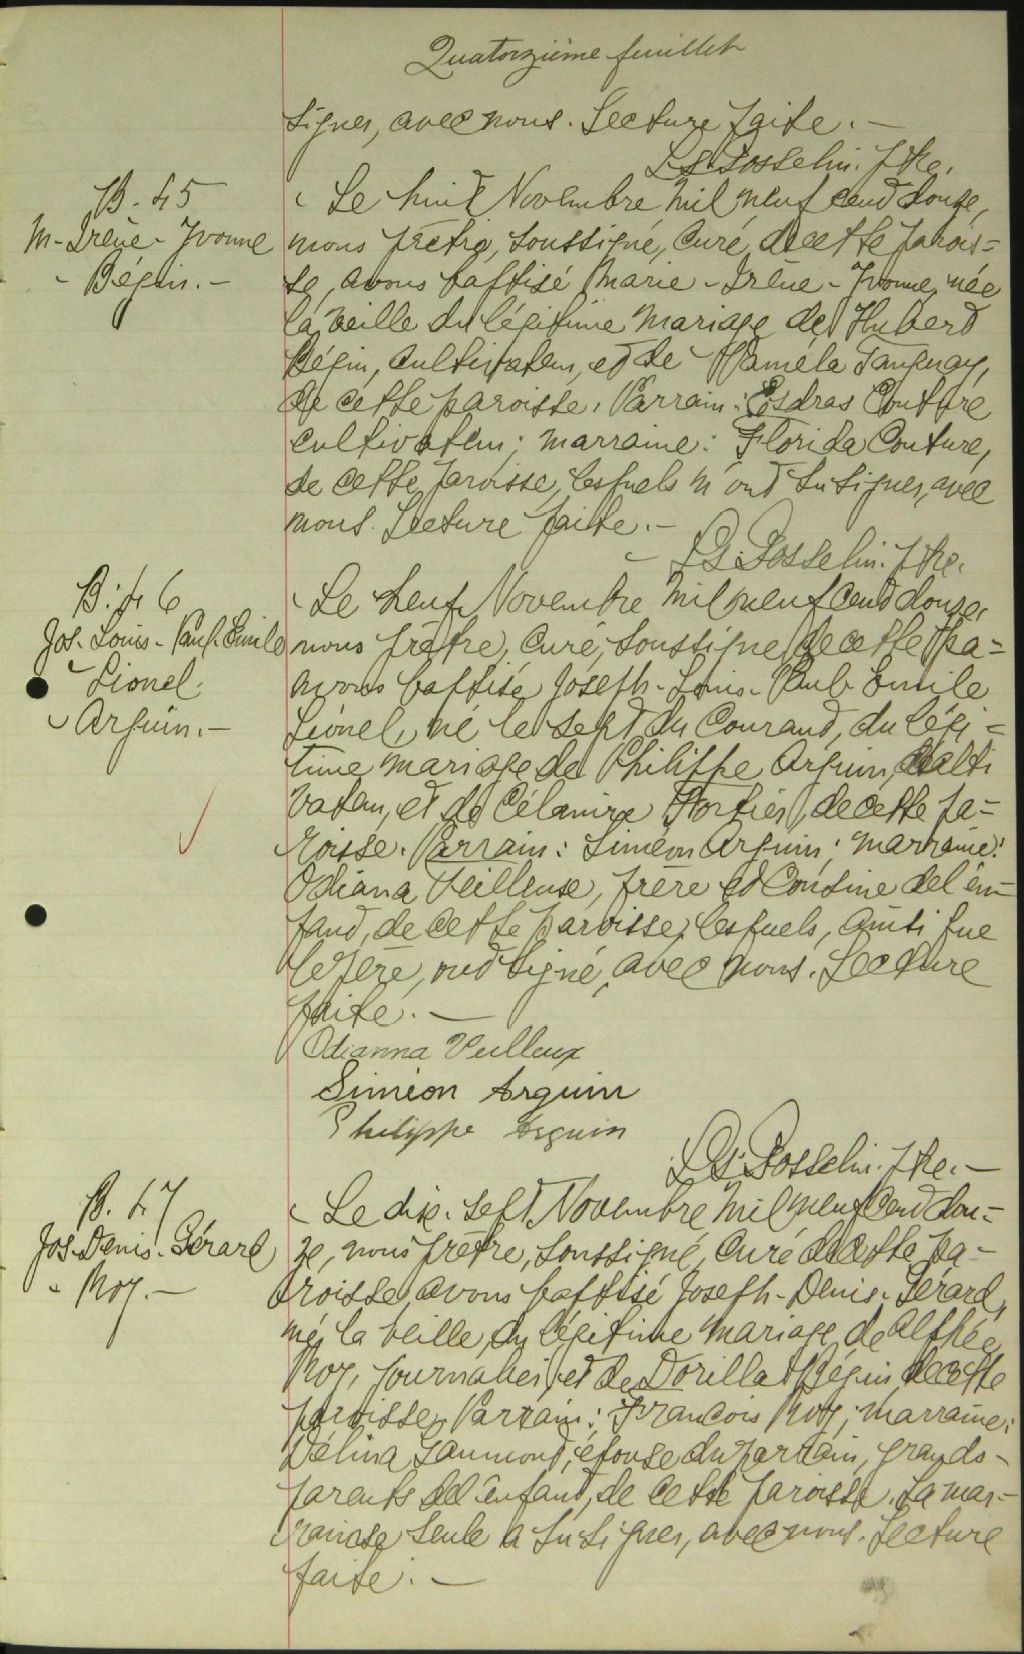 Quatorzième feuillet
signer, avec nous. Lecture faite. –
Ls. Gosselin. Ptre.
B. 45
M-Irène-Yvonne
- Bégin. -
Le huit Novembre mil neuf cent douze,
nous prêtre, soussigné, curé de cette parois=
se, avons baptisé Marie-Irène-Yvonne, née
la veille du légitime mariage de Hubert
Bégin, cultivateur, et de Paméla Tanguay,
de cette paroisse. Parrain: Esdras Couture
cultivateur; marraine: Florida Couture,
de cette paroisse, lesquels n'ont su signer, avec
nous. Lecture faite. –
Ls. Gosselin. Ptre.
B. 46
Jos. Louis-Paul-Emile
Lionel
- Arguin. -
Le neuf Novembre mil neuf cent douze,
nous prêtre, curé, soussigné de cette pa=
avons baptisé Joseph-Louis-Paul-Emile
Lionel, né le sept du courant, du légi=
time mariage de Philippe Arguin, culti
vateur, et de Célanire Fortier, de cette pa=
roisse. Parrain: Siméon Arguin; marraine:
Odiana Veilleuse, frère et cousine de l'en=
fant, de cette paroisse, lesquels, ainsi que
le père, ont signé, avec nous. Lecture
faite. –
Odianna Veilleux
Siméon Arguin
Philippe Arguin
Ls. Gosselin. Ptre. –
B. 47
Jos-Denis-Gérard
- Roy. -
Le dix-sept Novembre mil neuf cent dou=
ze, nous prêtre, soussigné, curé de cette pa-
roisse, avons baptisé Joseph-Denis-Gérard,
né, la veille, du légitime mariage de Alphée
Roy, journalier, et de Dorilla Bégin, de cette
paroisse. Parrain: François Roy; marraine:
Délina Gaumond, épouse du parrain, grands-
parents de l'enfant, de cette paroisse. La mar-
raine seule a su signer, avec nous. Lecture
faite. –